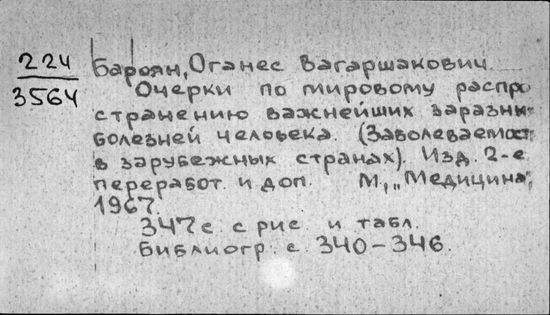 224
3564
Бароян, Оганес Вагаршакович.
Очерки по мировому распро
странению важнейших заразны
болезней человека. (Заболеваемост
в зарубежных странах). Изд. 2-е
переработ. и доп. М, „Медицина",
1967.
347 с с рис и табл.
Библиогр. с. 340-346.